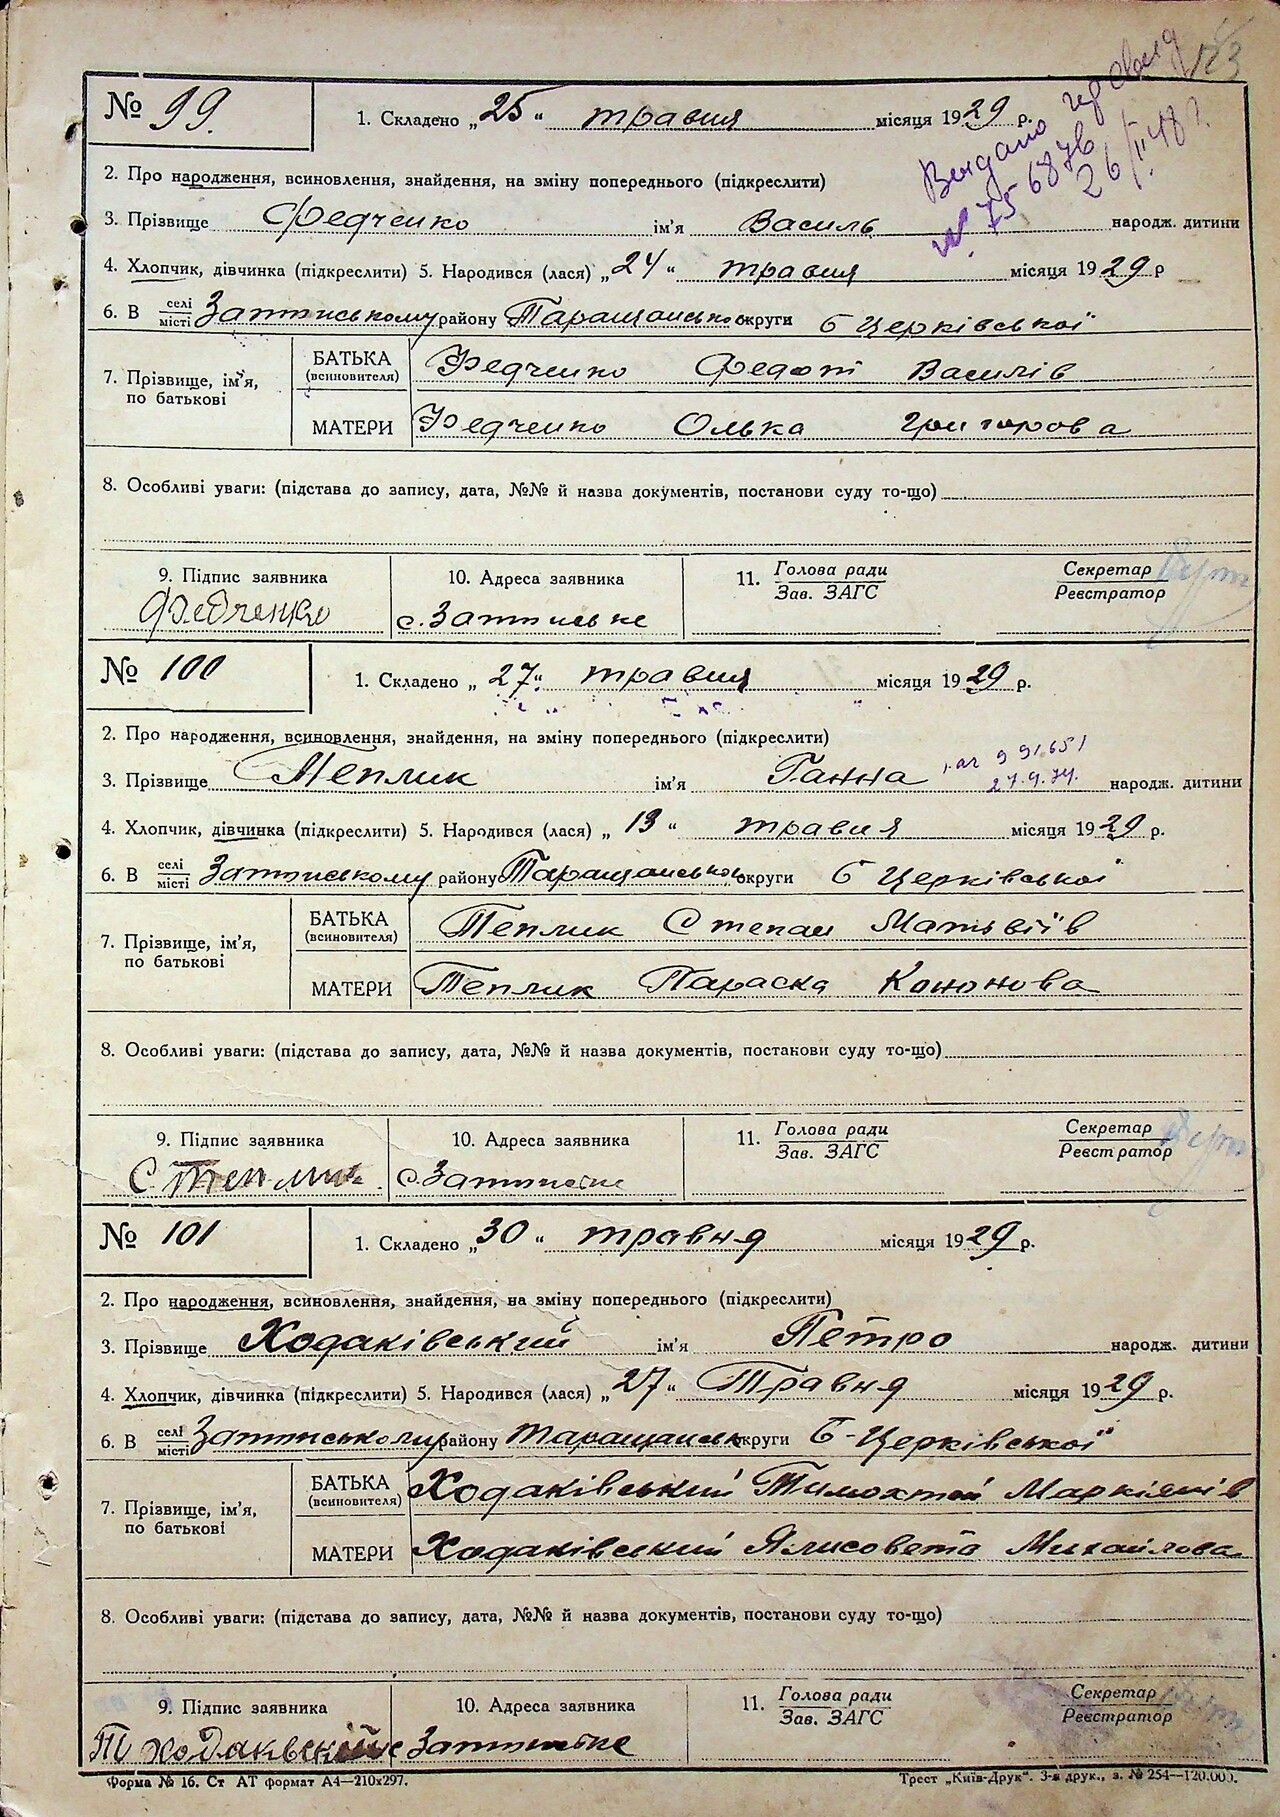 123
№ 99.
1. Складено „25“ травня місяця 1929 р.
Видано
№ 75 6876
26/II 48 г.
2. Про народження, всиновлення, знайдення, на зміну попереднього (підкреслити)
3. Прізвище Федченко ім'я Василь народж. дитини
4. Хлопчик, дівчинка (підкреслити) 5. Народився (лася) „24“ травня місяця 1929 р
6. В селі/місті району Таращансько округи Б Церківської
7. Прізвище, ім'я, по батькові
БАТЬКА (всиновителя) Федченко Федот Василів
МАТЕРИ Федченко Олька Григорова
8. Особливі уваги: (підстава до запису, дата, №№ й назва документів, постанови суду то-що)
9. Підпис заявника 10. Адреса заявника 11. Голова ради / Зав. ЗАГС Секретар / Реєстратор
Федченко с.
№ 100
1. Складено „27“ травня місяця 1929 р.
2. Про народження, всиновлення, знайдення, на зміну попереднього (підкреслити)
3. Прізвище Теплик ім'я Ганна народж. дитини
991651
27.9.74.
4. Хлопчик, дівчинка (підкреслити) 5. Народився (лася) „13“ травня місяця 1929 р.
6. В селі/місті району Таращанської округи Б Церківської
7. Прізвище, ім'я, по батькові
БАТЬКА (всиновителя) Теплик Степан Матьвіїв
МАТЕРИ Теплик Параска Кононова
8. Особливі уваги: (підстава до запису, дата, №№ й назва документів, постанови суду то-що)
9. Підпис заявника 10. Адреса заявника 11. Голова ради / Зав. ЗАГС Секретар / Реєстратор
С Теплик с.
№ 101
1. Складено „30“ травня місяця 1929 р.
2. Про народження, всиновлення, знайдення, на зміну попереднього (підкреслити)
3. Прізвище Ходаківський ім'я Петро народж. дитини
4. Хлопчик, дівчинка (підкреслити) 5. Народився (лася) „27“ Травня місяця 1929 р.
6. В селі/місті району округи Б-Церківської
7. Прізвище, ім'я, по батькові
БАТЬКА (всиновителя) Ходаківський Тимохтей Маркіянів
МАТЕРИ Ходаківский Ялисовета Михайлова
8. Особливі уваги: (підстава до запису, дата, №№ й назва документів, постанови суду то-що)
9. Підпис заявника 10. Адреса заявника 11. Голова ради / Зав. ЗАГС Секретар / Реєстратор
Т с
Форма № 16. Ст АТ формат А4—210х297. Трест „Київ-Друк“. 3-я друк., з. № 254—120.000.